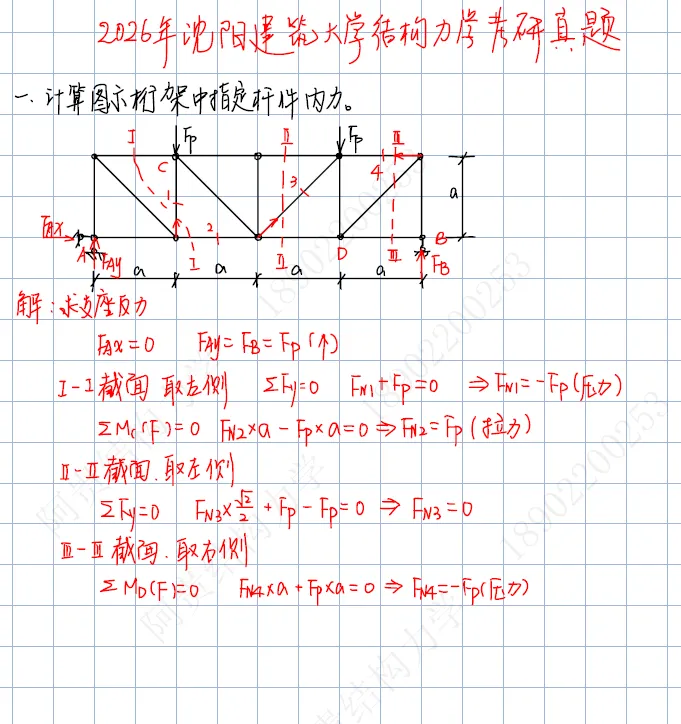 2026年沈阳建筑大学结构力学考研真题
一.计算图示桁架中指定杆件内力。
I Fp II Fp III
C 3 4
1 a
FAx 2
A FAy I II D III B FB
a a a a
解:求支座反力
FAx=0 FAy=FB=Fp(↑)
I-I截面 取左侧 ΣFy=0 FN1+Fp=0 ⇒FN1=-Fp(压力)
ΣMC(F)=0 FN2×a-Fp×a=0⇒FN2=Fp(拉力)
II-II截面.取左侧
ΣFy=0 FN3×√2/2+Fp-Fp=0 ⇒ FN3=0
III-III截面.取右侧
ΣMD(F)=0 FN4×a+Fp×a=0⇒FN4=-Fp(压力)
阿
结构力学
18902200253